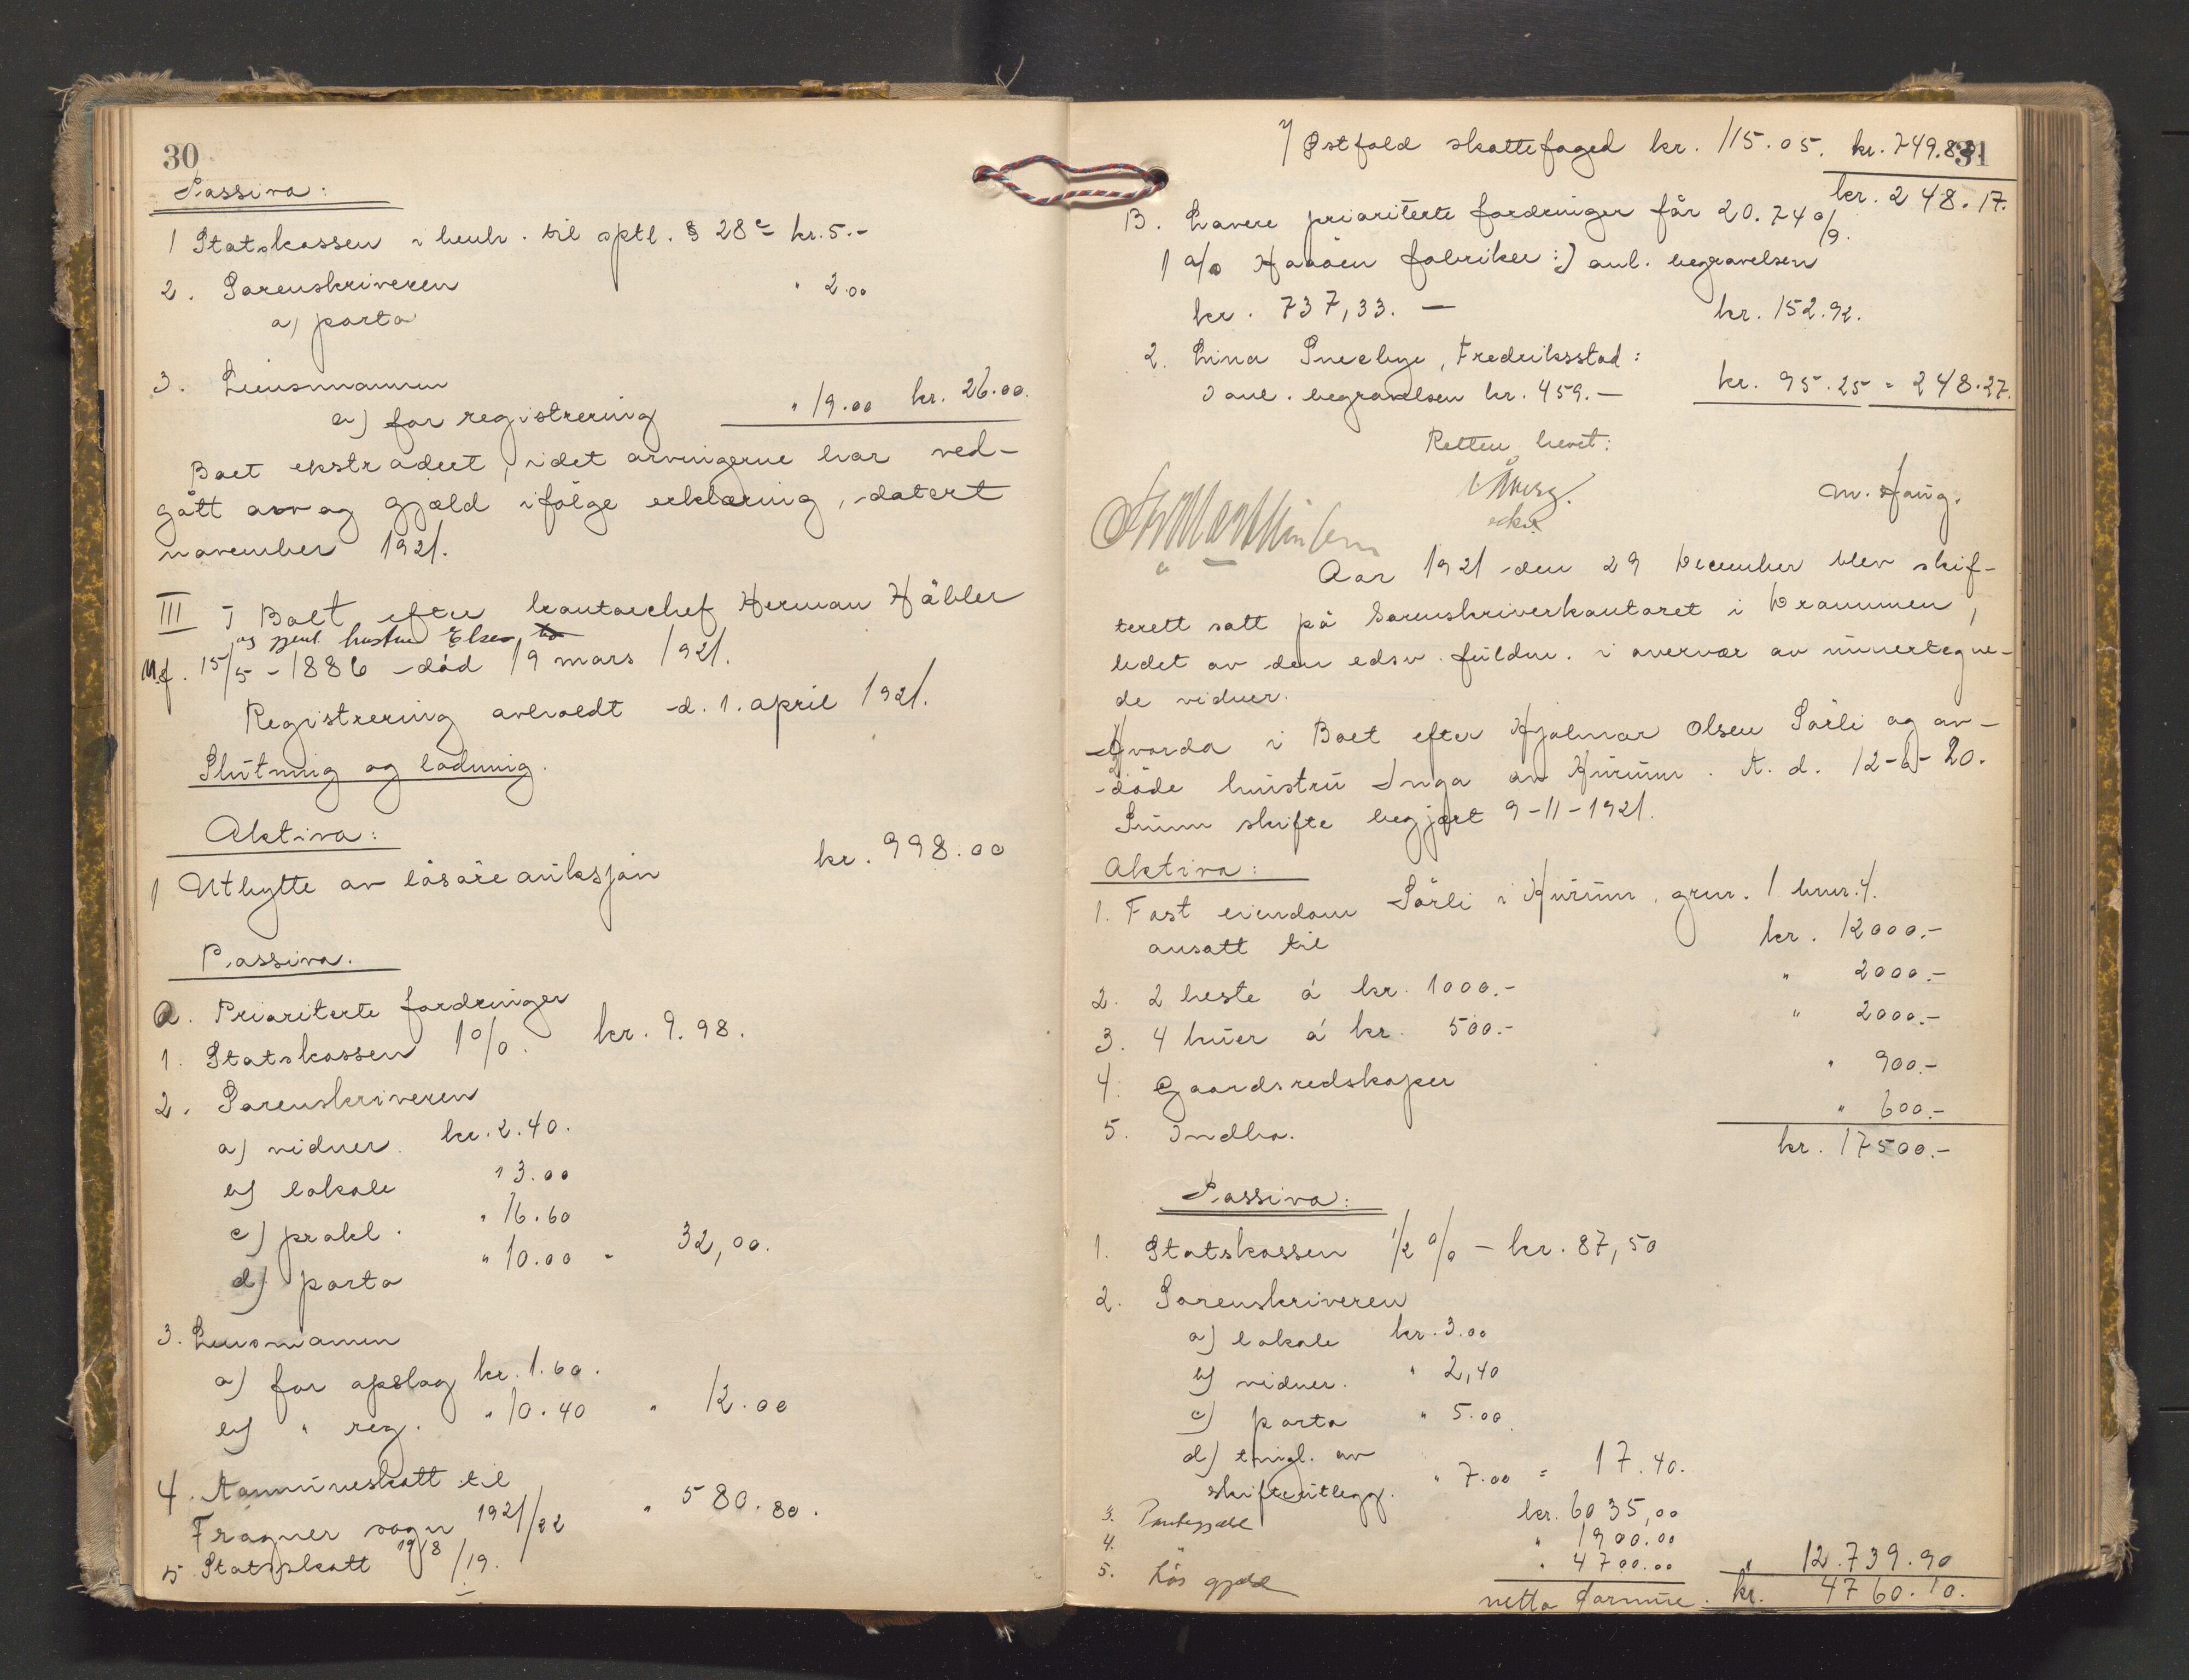 30
Passiva:
1 Statskassen i henh. til sptl. § 28 c kr. 5.-
2. Sorenskriveren
a) porto " 2.00
3. Lensmannen
a) for registrering " 19.00 kr. 26.00.
Boet ekstradert, idet arvingerne har ved-
gått arv og gjæld ifölge erklæring, datert
november 1921.
III I Boet efter kontorchef Herman Häbler
og gjenl. hustru Elsen,
f. 15/5 - 1886 död 19 mars 1921.
Registrering avholdt d. 1. april 1921.
Slutning og lodning.
Aktiva:
1 Utbytte av lösöreauksjon kr. 998.00
Passiva.
a. Prioriterte fordringer
1. Statskassen 1%. kr. 9.98.
2. Sorenskriveren
a) vidner kr. 2.40.
b) lokale " 3.00
c) prokl. " 16.60
d) porto " 10.00 - 32,00.
3. Lensmannen
a) for opslag kr. 1.60.
b) " reg. " 10.40 " 12.00
4. Kommuneskatt til
Frogner sogn 1921/22 " 580.80.
5 Statsskatt 1918/19.
31
Østfold skattefoged kr. 115.05. kr. 749.83
kr. 248.17.
B. Lavere prioriterte fordringer får 20.74%.
1 a/s fabriker :) anl. begravelsen
kr. 737,33. — kr. 152.92.
2. Lina Sneebye, Fredriksstad:
I anl. begravelsen kr. 459.— kr. 95.25 = 248.27.
Retten hevet:
M. Haug.
Aar 1921 den 29 December blev skif-
terett satt på Sorenskriverkontoret i Drammen,
ledet av den edsv. fuldm. i overvær av undertegne-
de vidner.
Hvorda i Boet efter Hjalmar Olsen Sörli og av-
döde hustru Inga av Hurum. A. d. 12-6-20.
Summ skifte begjært 9-11-1921.
Aktiva:
1. Fast eiendom Sörli i Hurum, grnr. 1 bnr. 4.
ansatt til kr. 12000.-
2. 2 heste á kr. 1000.- " 2000.-
3. 4 kuer á kr. 500.- " 2000.-
4. Gaardsredskaper " 900.-
5. Indbo. " 600.-
kr. 17500.-
Passiva:
1. Statskassen 1/2 % - kr. 87,50
2. Sorenskriveren
a) lokale kr. 3.00
b) vidner. " 2,40
c) porto " 5.00
d) tingl. av
skifteutlegg. " 7.00 = 17.40.
3. Pantegjæld kr. 6035,00
4. " " 1900.00
5. Lös gjæld " 4700.00 " 12.739.90
netto formue. kr. 4760.10.